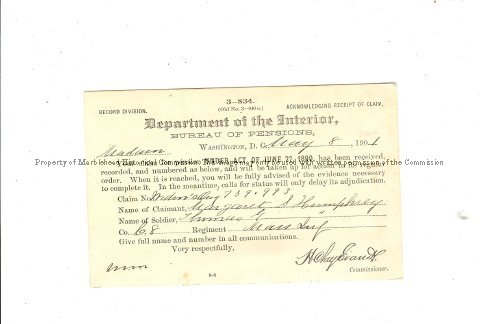 3—834.
(Old No. 3—640 c.)
RECORD DIVISION. ACKNOWLEDGING RECEIPT OF CLAIM.
Department of the Interior,
BUREAU OF PENSIONS,
WASHINGTON, D. C., May 8, 1901
Madam
UNDER ACT OF JUNE 27, 1890, has been received,
Property of Marblehead Historical Commission
recorded, and numbered as below, and will be taken up for action in its regular
order. When it is reached, you will be fully advised of the evidence necessary
to complete it. In the meantime, calls for status will only delay its adjudication.
Claim No. 739.993
Name of Claimant, Margaret S Humphrey
Name of Soldier, Thomas E "
Co. 8 Regiment Mass Inf
Give full name and number in all communications.
Very respectfully,
H Clay Evans
Commissioner.
6-4